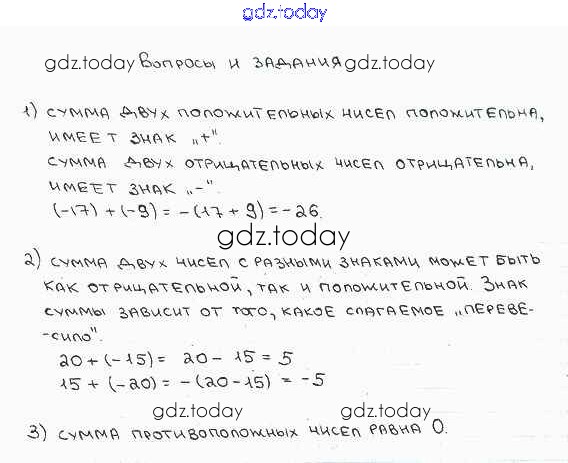 gdz.today
gdz.today Вопросы и задания gdz.today
1) Сумма двух положительных чисел положительна,
имеет знак „+".
Сумма двух отрицательных чисел отрицательна,
имеет знак „-".
(-17) + (-9) = -(17 + 9) = -26.
gdz.today
2) Сумма двух чисел с разными знаками может быть
как отрицательной, так и положительной. Знак
суммы зависит от того, какое слагаемое „переве-
-сило".
20 + (-15) = 20 - 15 = 5
15 + (-20) = -(20-15) = -5
gdz.today gdz.today
3) Сумма противоположных чисел равна 0.